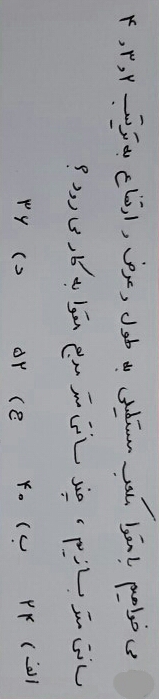 می خواهیم با مقوا مکعب مستطیلی به طول و عرض و ارتفاع به ترتیب ۲ و ۳ و ۴
سانتی متر بسازیم ، چند سانتی متر مربع مقوا به کار می رود ؟
الف) ۲۴ ب) ۴۰ ج) ۵۲ د) ۳۶